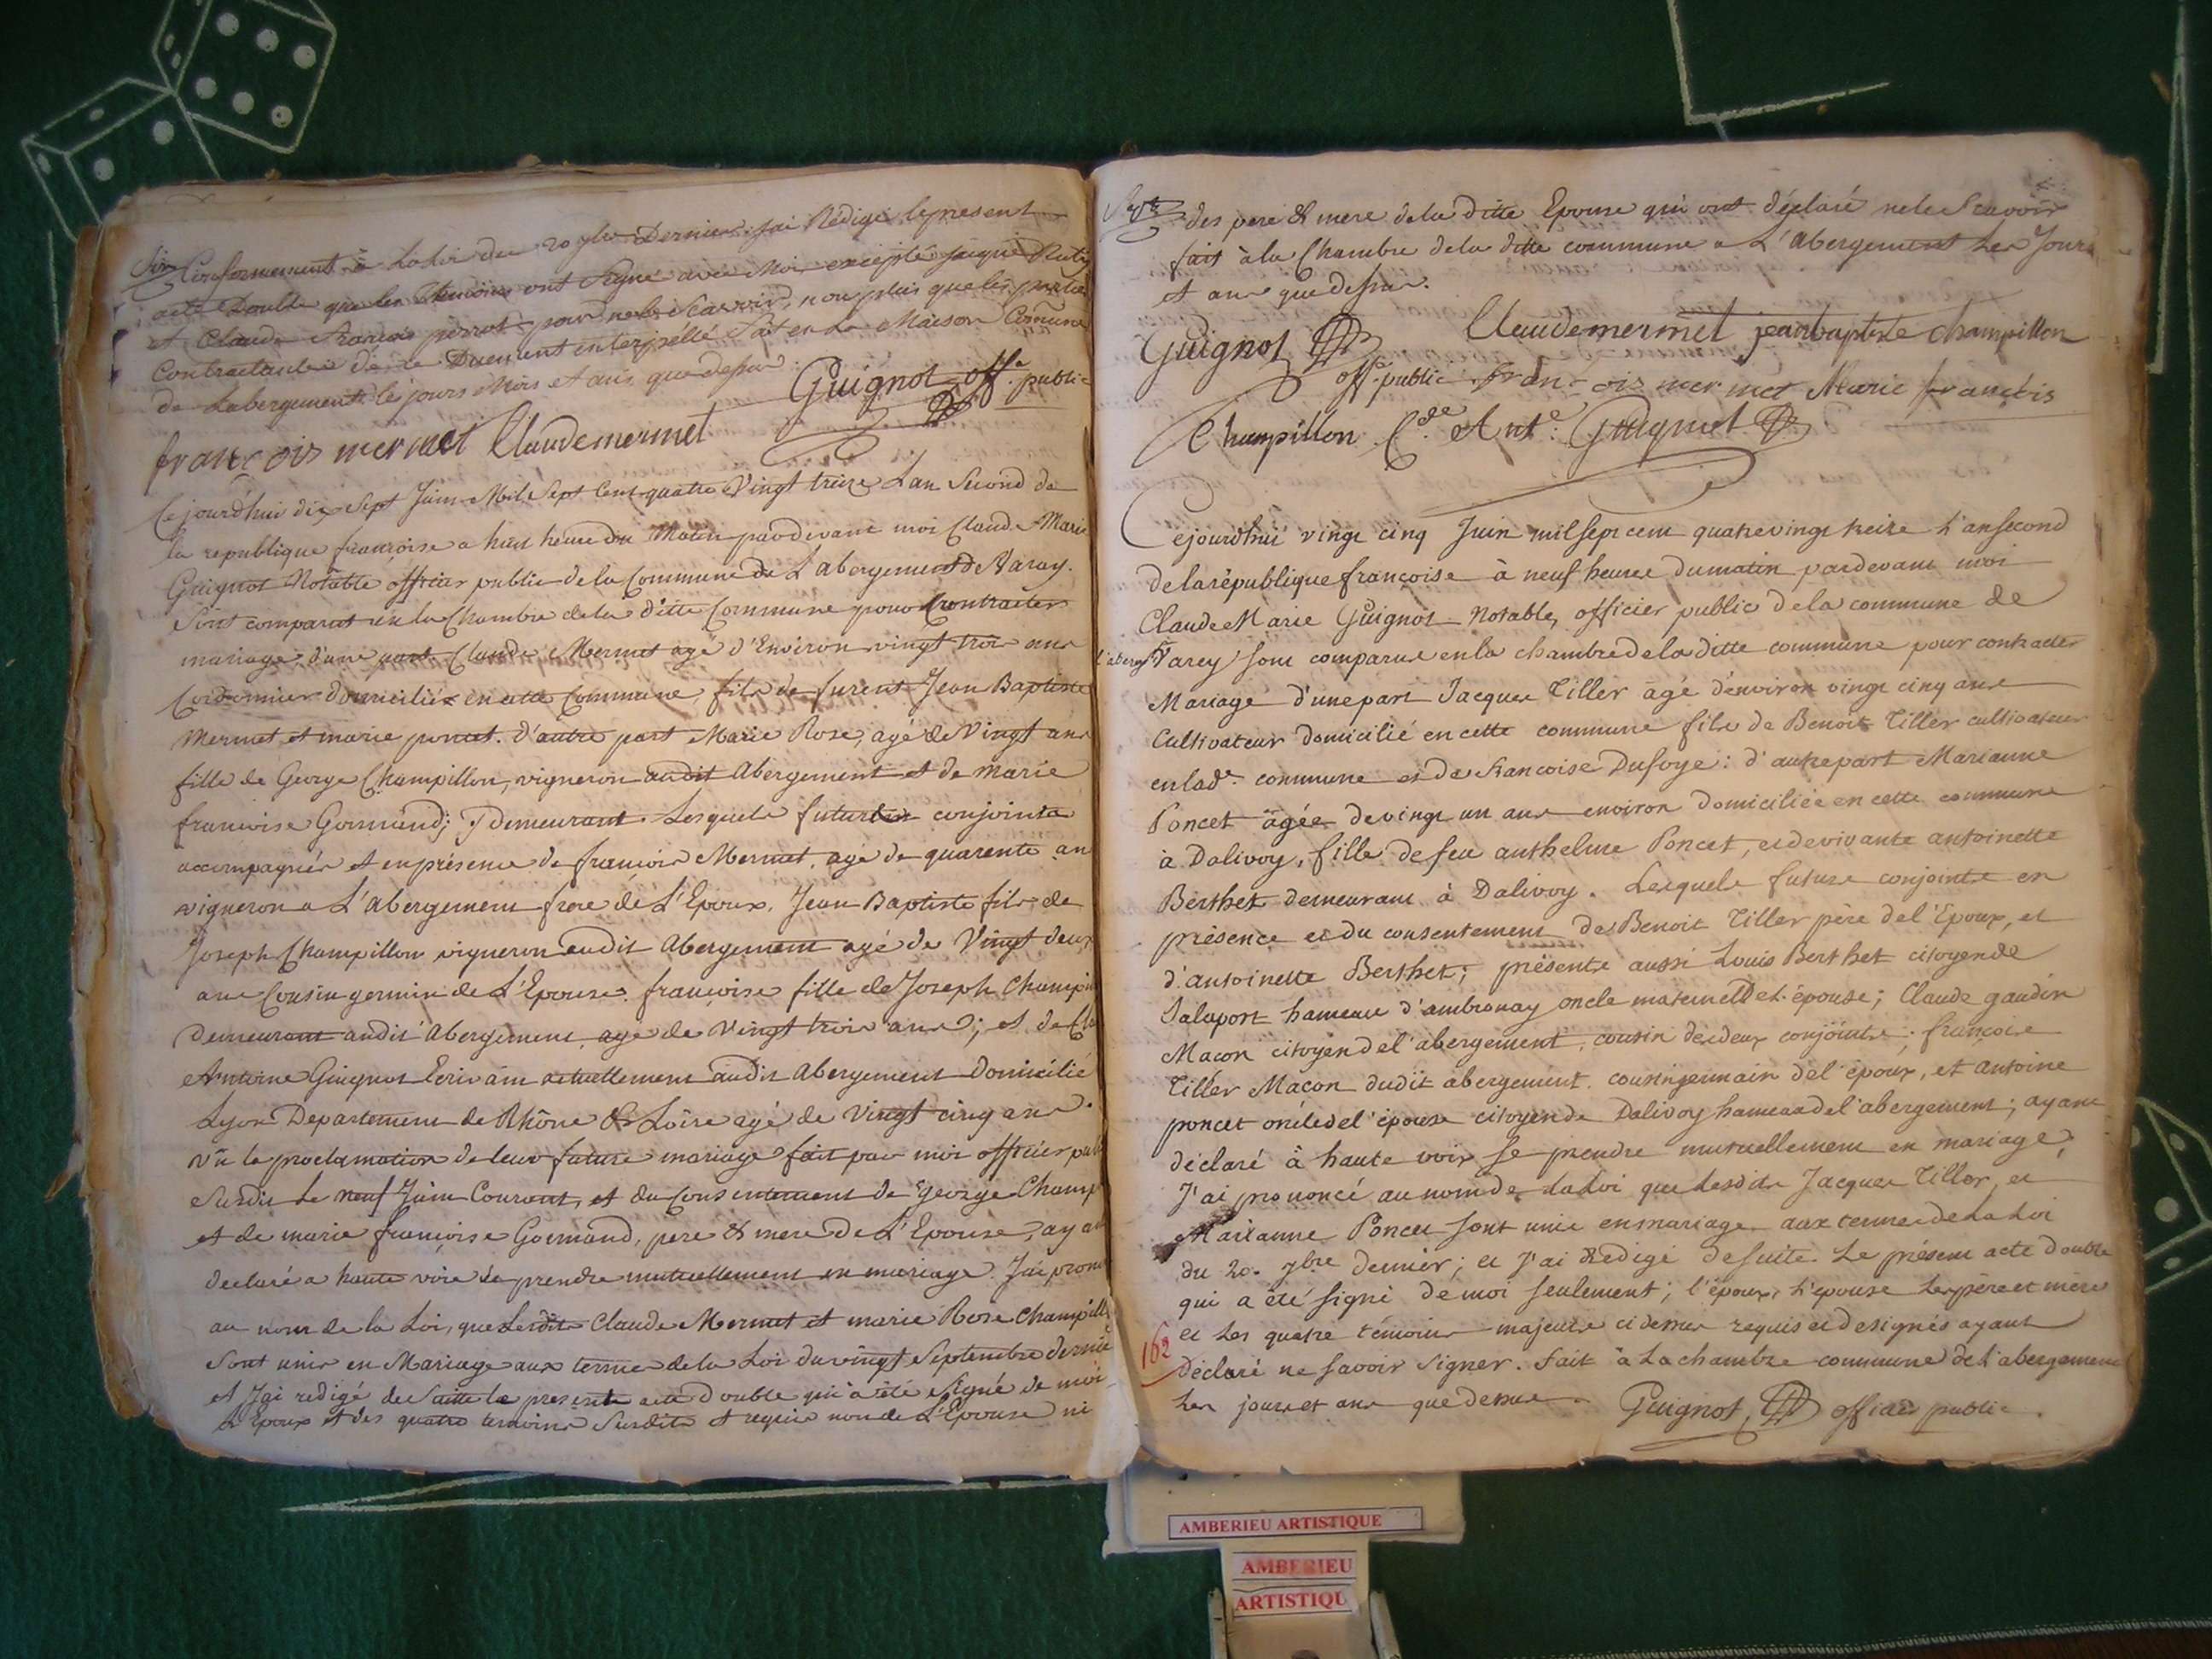 Conformement à la Loi du 20 7bre Dernier. j'ai Rédigé le present
acte Double que les témoins ont Signé avec Moi excepté jacque
et Claude François perrot pour ne le Scavoir, non plus que les parties
Contractantes de ce Duement interpéllé Fait en La Maison Comune
de Labergement le jours Mois et ans que dessus.
Guignot offr. public
francois mermet Claudemermet
Ce jourd'hui dix Sept Juin Mil Sept Cent quatre Vingt treize L'an Second de
la republique françoise a huit heure du Matin pardevant moi Claude Marie
Guignot Notable officier public de la Commune de L'abergement de Varay.
Sont comparut en la Chambre de la ditte Commune pour Contracter
mariage, d'une part Claude Mermet agé d'Environ vingt trois ans
Cordonnier domicilié en cette Commune, fils de furent Jean Baptiste
Mermet et marie poncet. d'autre part Marie Rose, agé de Vingt ans
fille de George Champillon, vigneron audit Abergement et de marie
francoise Gormand; y demeurant. Lesquels futurs conjoints
accompagnés et en présence de francois Mermet, agé de quarente an
vigneron a L'abergement frere de L'Epoux, Jean Baptiste fils de
Joseph Champillon vigneron audit Abergement agé de Vingt deux
ans Cousin germin de L'Epouse. françoise fille de Joseph Champi
Demeurant audit Abergement, agé de Vingt trois ans; et de Cla
Antoine Guignot Ecrivain actuellement audit Abergement Domicilié
Lyon Departement de Rhône & Loire agé de Vingt cinq ans.
Vû la proclamation de leur future mariage fait par moi officier pub
Susdit Le neuf Juin Courant, et du Consentement de George Champ
et de marie françoise Gormand, pere & mere de L'Epouse, aya
declaré a haute voix Se prendre mutuellement en mariage. J'ai prono
au nom de la Loi, que Lesdits Claude Mermet et marie Rose Champill
Sont unis en Mariage aux termes de la Loi du vingt Septembre dernie
et J'ai redigé de Suitte le presente acte double qui a été Signé de moi
L'Epoux et des quatre temoins Susdits et requis non de L'Epouse ni
des pere & mere de la ditte Epouse qui ont déclaré ne le Scavoir
fait à la Chambre de la ditte commune a L'Abergement Les Jours
et ans que dessus.
Guignot Claudemermet jeanbaptiste champillon
off. public francois mermet Marie francois
Champillon Cde. Ante. Guignot
Cejourd'hui vingt cinq Juin mil sept cent quatrevingt treize l'an second
de la république françoise à neuf heures du matin pardevant moi
Claude Marie Guignot Notable, officier public de la commune de
Varey sont comparus en la chambre de la ditte commune pour contracter
Mariage d'une part Jacques Tiller âgé d'environ vingt cinq ans
Cultivateur domicilié en cette commune fils de Benoit Tiller cultivateur
en lade. commune et de francoise Dufoye: d'autre part Marianne
Poncet âgée de vingt un ans environ domiciliée en cette commune
à Dalivoy, fille de feu anthelme Poncet, et de vivante antoinette
Berthet demeurant à Dalivoy. Lesquels futurs conjoints en
présence et du consentement de Benoit Tiller père de l'Epoux, et
d'antoinette Berthet; présents aussi Louis Berthet citoyen de
Salaport hameau d'ambronay oncle maternel de L'épouse; Claude gaudin
Macon citoyen de l'abergement, cousin des deux conjoints; françois
Tiller Macon dudit abergement, cousin germain de l'époux, et antoine
poncet oncle de l'épouse citoyen de Dalivoy hameau de l'abergement; ayant
déclaré à haute voix se prendre mutuellement en mariage,
J'ai prononcé au nom de La Loi que Lesdits Jacques Tiller, et
Marianne Poncet sont unis en mariage aux termes de La Loi
du 20. 7bre dernier; et J'ai Redigé de suite Le présent acte double
qui a été signé de moi seulement; l'époux, l'épouse Les père et mère
et Les quatre témoins majeurs ci dessus requis et designés ayant
162
déclaré ne savoir signer. fait à La chambre commune de l'abergement
Les jours et ans que dessus. Guignot officier public.
AMBERIEU ARTISTIQUE
AMBERIEU
ARTISTIQU